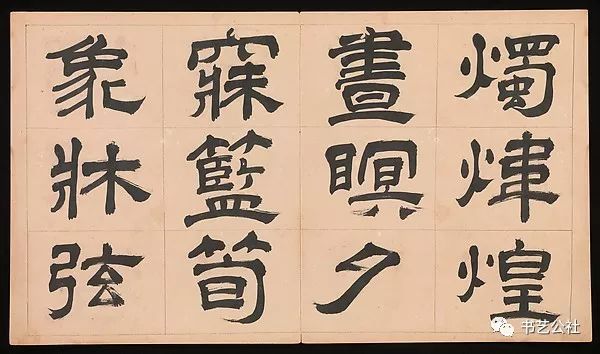 燭煒煌
晝瞑夕
寐籃筍
象牀弦
书艺公社